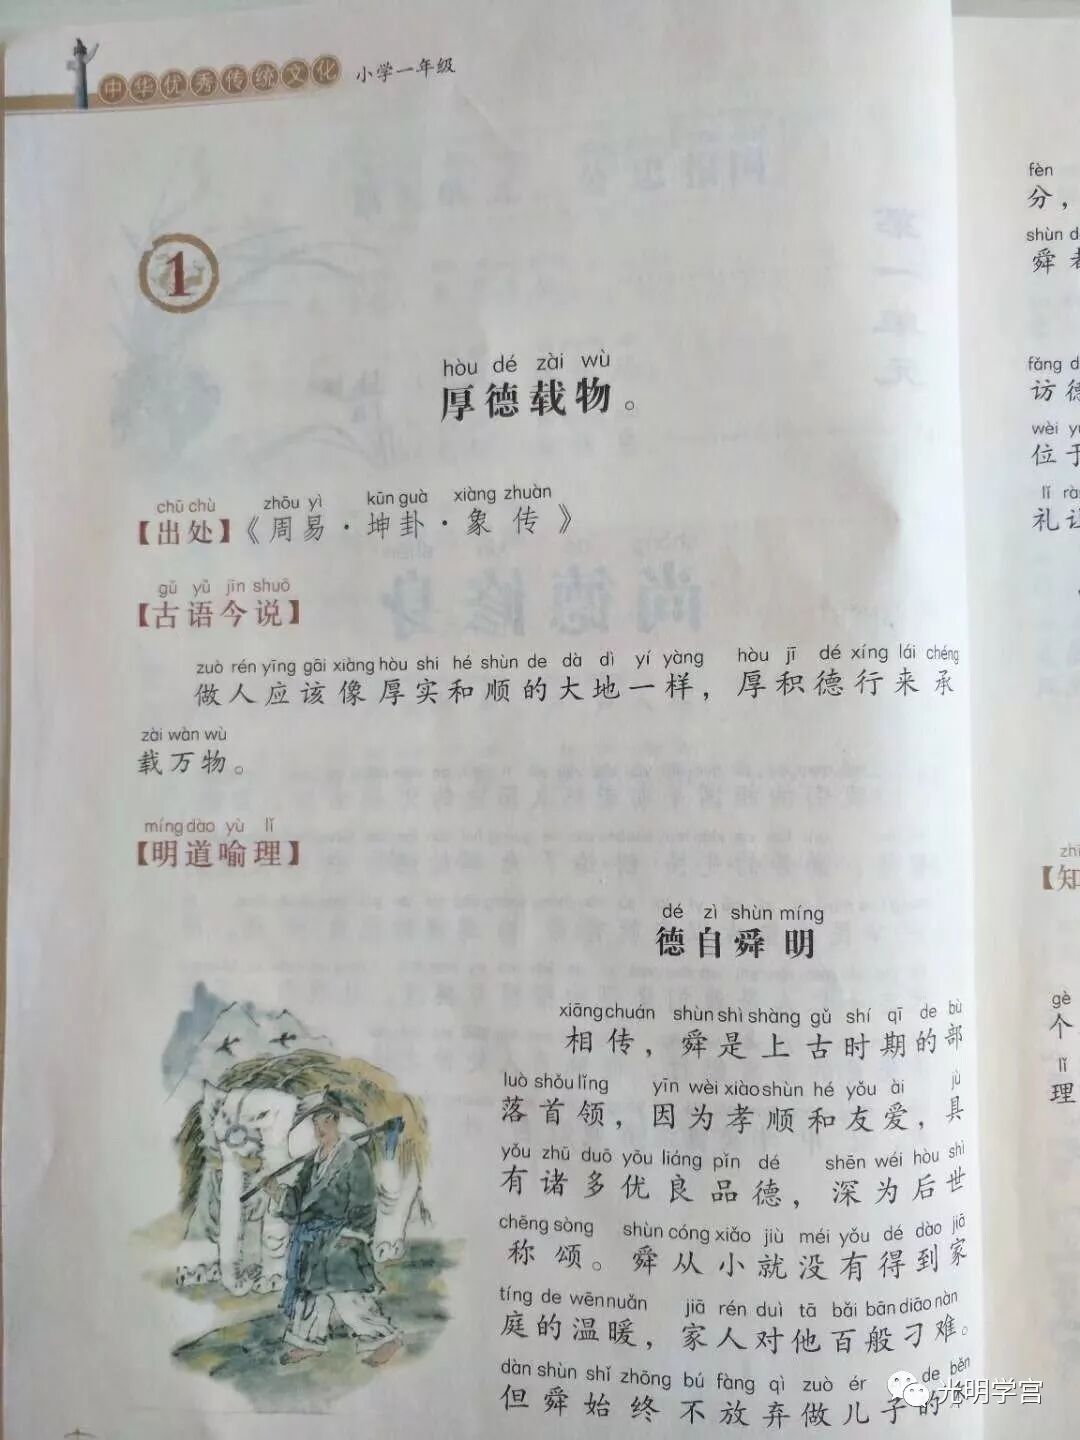 中华优秀传统文化 小学一年级
1
hòu dé zài wù
厚德载物。
chū chù zhōu yì kūn guà xiàng zhuàn
【出处】《周易·坤卦·象传》
gǔ yǔ jīn shuō
【古语今说】
zuò rén yīng gāi xiàng hòu shi hé shùn de dà dì yí yàng hòu jī dé xíng lái chéng
做人应该像厚实和顺的大地一样，厚积德行来承
zài wàn wù
载万物。
míng dào yù lǐ
【明道喻理】
dé zì shùn míng
德自舜明
xiāng chuán shùn shì shàng gǔ shí qī de bù
相传，舜是上古时期的部
luò shǒu lǐng yīn wèi xiào shùn hé yǒu ài jù
落首领，因为孝顺和友爱，具
yǒu zhū duō yōu liáng pǐn dé shēn wéi hòu shì
有诸多优良品德，深为后世
chēng sòng shùn cóng xiǎo jiù méi yǒu dé dào jiā
称颂。舜从小就没有得到家
tíng de wēn nuǎn jiā rén duì tā bǎi bān diāo nàn
庭的温暖，家人对他百般刁难。
dàn shùn shǐ zhōng bú fàng qì zuò ér de běn
但舜始终不放弃做儿子的本
fèn
分，
shùn
舜
fǎng
访德
wèi
位于
lǐ
礼让
【知
gè
个
lǐ
理
光明学宫